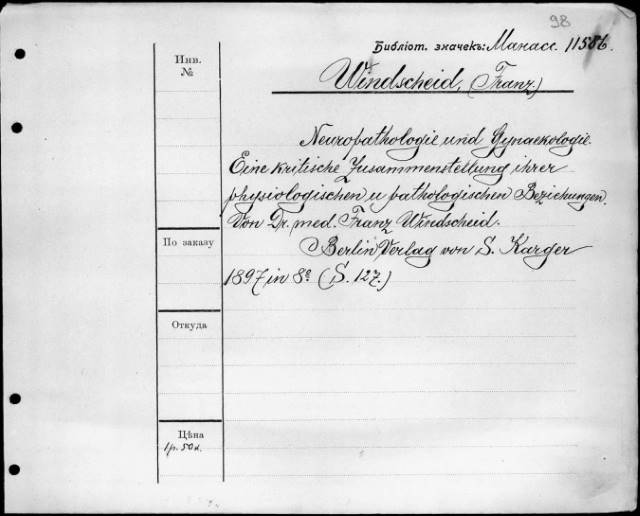 98
Библіот. значекъ: Манасс. 11586.
Инв.
№
Windscheid, (Franz.)
Neuropathologie und Gynaekologie.
Eine kritische Zusammenstellung ihrer
physiologischen u pathologischen Beziehungen.
Von Dr. med. Franz Windscheid.
Berlin Verlag von S. Karger
1897 in 8º (S. 127.)
По заказу
Откуда
Цѣна
1р. 50к.